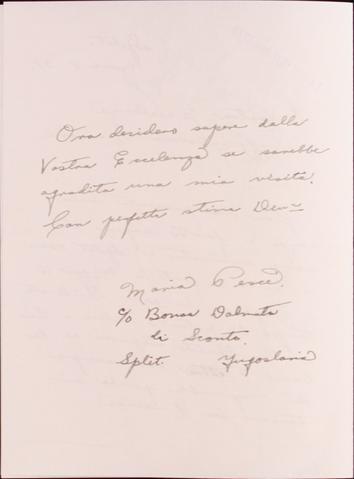 Ora desidero sapere dalla
Vostra Eccelenza se sarebbe
agradita una mia visita.
Con perfetta stima Dev—
Maria
c/o Banca Dalmata
di Sconto.
Split. Yugoslavia